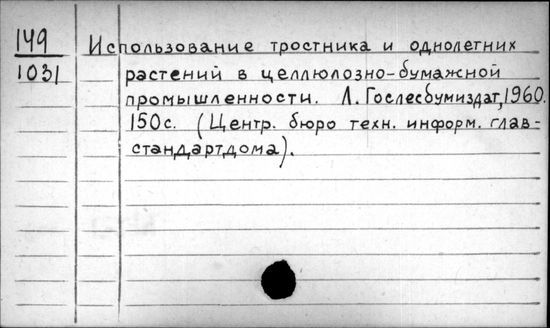 149
1031
Использование тростника и однолетних
растений в целлюлозно-бумажной
промышленности. Л. Гослесбумиздат, 1960.
150с. (Центр. бюро техн. информ. глав-
стандартдома).